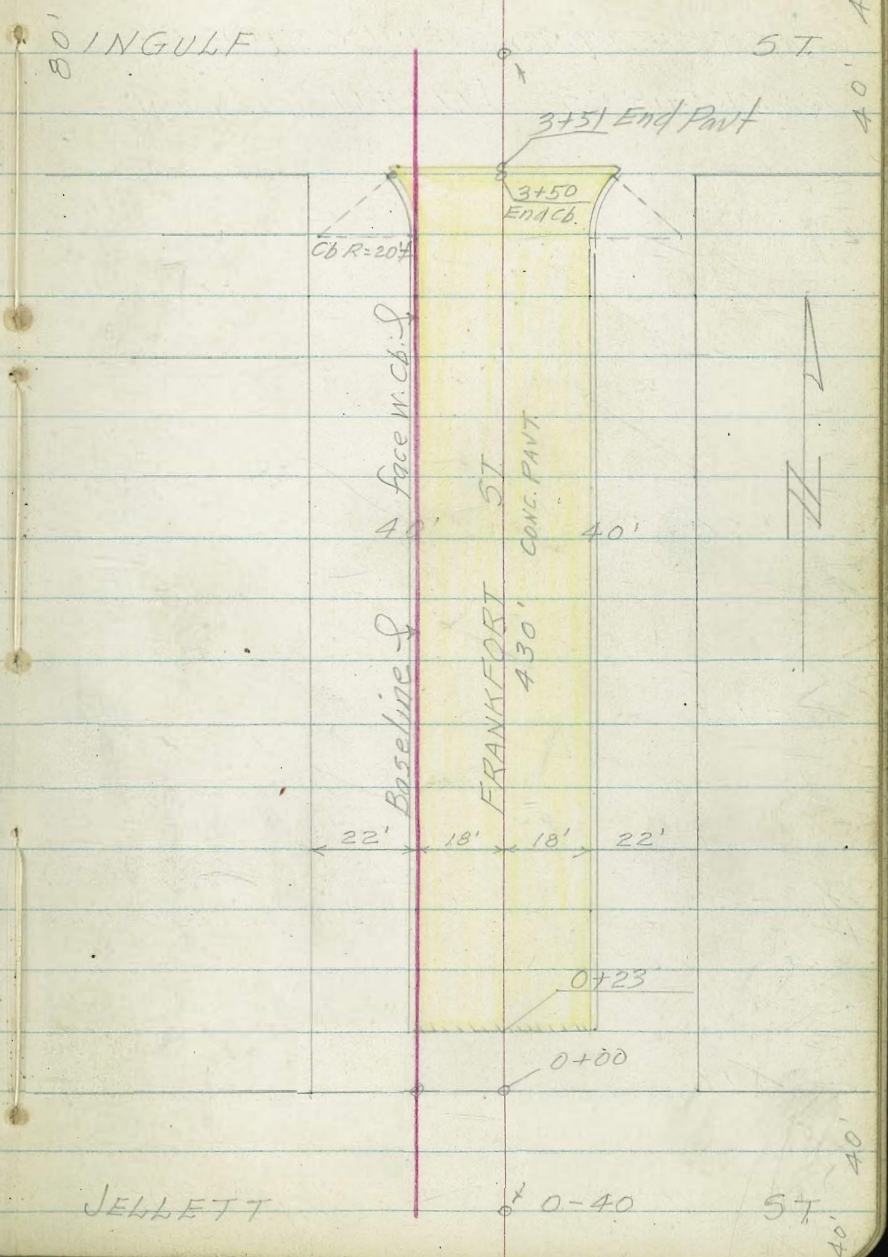 80' INGULF ST.
40'
3+51 End Pavt
3+50
End Cb.
Cb R=20'
face W. Cb.
Baseline
40' 40'
FRANKFORT ST
430' CONC. PAVT.
N
22' 18' 18' 22'
0+23
0+00
0-40
JELLETT ST.
40'
40'